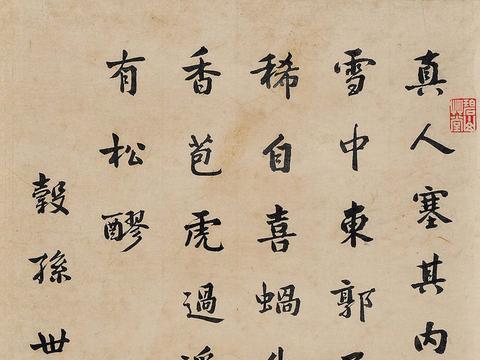 真人塞其内
雪中東郭
稀自喜蝸
香苞虎過
有松醪
穀孫世